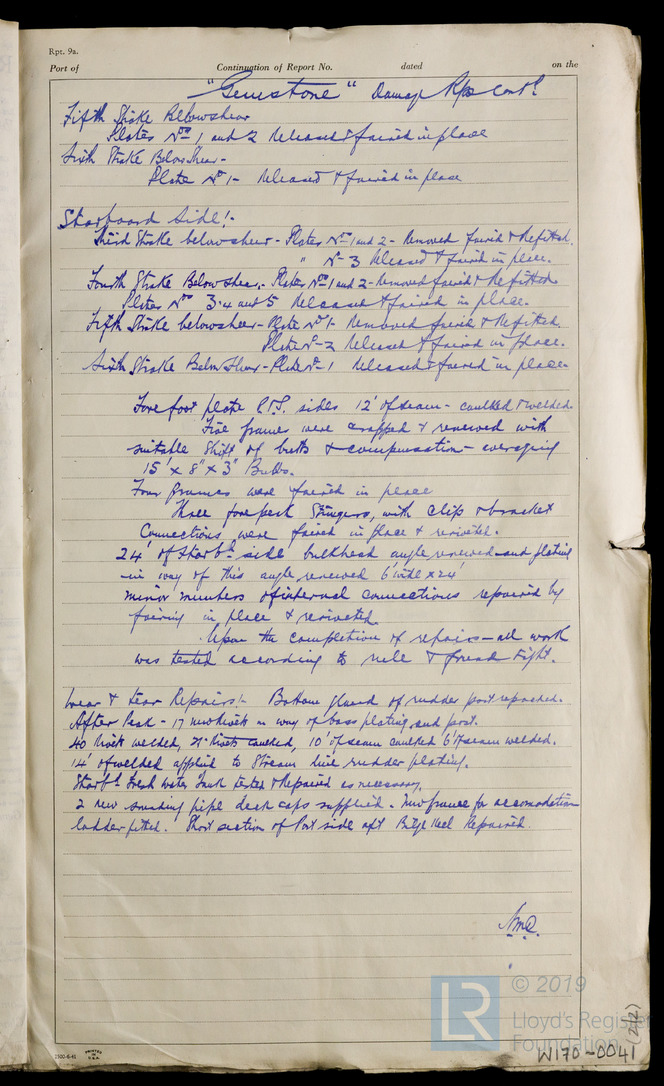 Rpt. 9a.
Port of Continuation of Report No. dated on the
"Gemstone" Damage Rps Contd
Fifth Strake Below shear
Plates Nos 1 and 2 Released & faired in place
Sixth Strake Below Shear -
Plate No 1 - Released & faired in place
Starboard Side! -
Third Strake below shear - Plates Nos 1 and 2 - Removed faired & Refitted.
" No 3 Released & faired in place.
Fourth Strake Below Shear, - Plates Nos 1 and 2 - Removed faired & Refitted
Plates Nos 3.4 and 5 Released & faired in place.
Fifth Strake below shear - Plate No 1 - Removed faired & Refitted.
Plate No - 2 Released & faired in place.
Sixth Strake Below Shear - Plate No - 1 Released & faired in place -
Fore foot plate P.&S. sides 12' of seam - caulked & welded.
Five frames were cropped & renewed with
suitable shift of butts & compensation - averaging
15' x 8" x 3" Bulbs.
Four frames were faired in place
Three fore peak Stringers, with clips & bracket
Connections were faired in place & reriveted.
24' of Starbd side bulkhead angle renewed and plating
in way of this angle renewed 6' wide x 24'
minor members of internal connections repaired by
fairing in place & reriveted.
Upon the completion of repairs - all work
was tested according to rule & found tight.
Wear & tear Repairs! - Bottom gland of rudder post repacked.
After Peak - 17 new Rivets in way of boss plating and post.
40 Rivets welded, 21 Rivets caulked, 10' of seam caulked 6' of seam welded.
14' of welded applied to Stream line rudder plating.
Starbd Fresh Water Tank tested & Repaired as necessary.
2 new sounding pipe deck caps supplied. New frame for accomodation
ladder fitted. Short section of Port side aft Bilge Keel Repaired.
1500-6-41
PRINTED IN U.S.A.
LR
© 2019
Lloyd's Register
Foundation
W170-0041 (2/2)